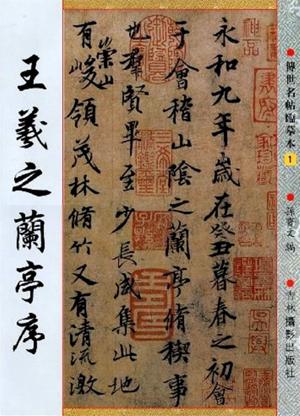 傳世名帖臨摹本
1
孫寶文 編
吉林攝影出版社
永和九年歲在癸丑暮春之初會
于會稽山陰之蘭亭脩禊事
也羣賢畢至少長咸集此地
有崇山峻領茂林脩竹又有清流激
王羲之蘭亭序